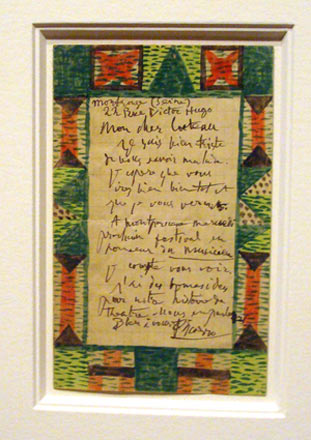 Montrouge (Seine)
22 Rue Victor Hugo
Mon cher Cocteau
Je suis bien triste
de vous savoir malade.
J'espere que vous
irez bien bientot et
que je vous verrai.
A Montparnasse mercredi
prochain festival en
honneur du musicien
Je compte vous voir.
J'ai des bonnes idées
pour notre histoire de
theatre. Nous en parlerons
Bien à vous Picasso